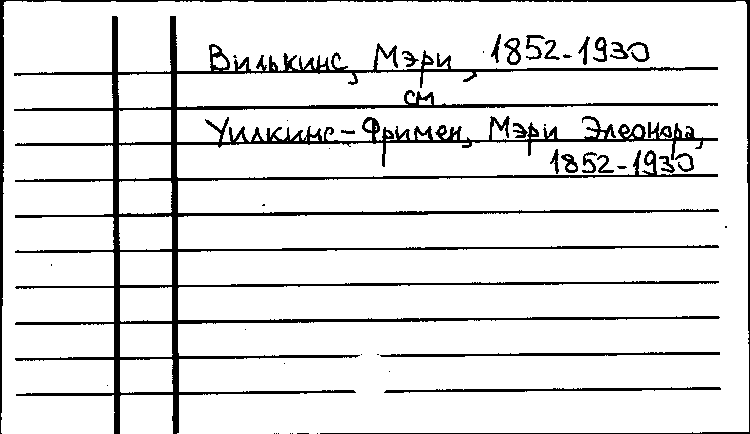 Вилькинс, Мэри, 1852-1930
см
Уилкинс-Фримен, Мэри Элеонора,
1852-1930